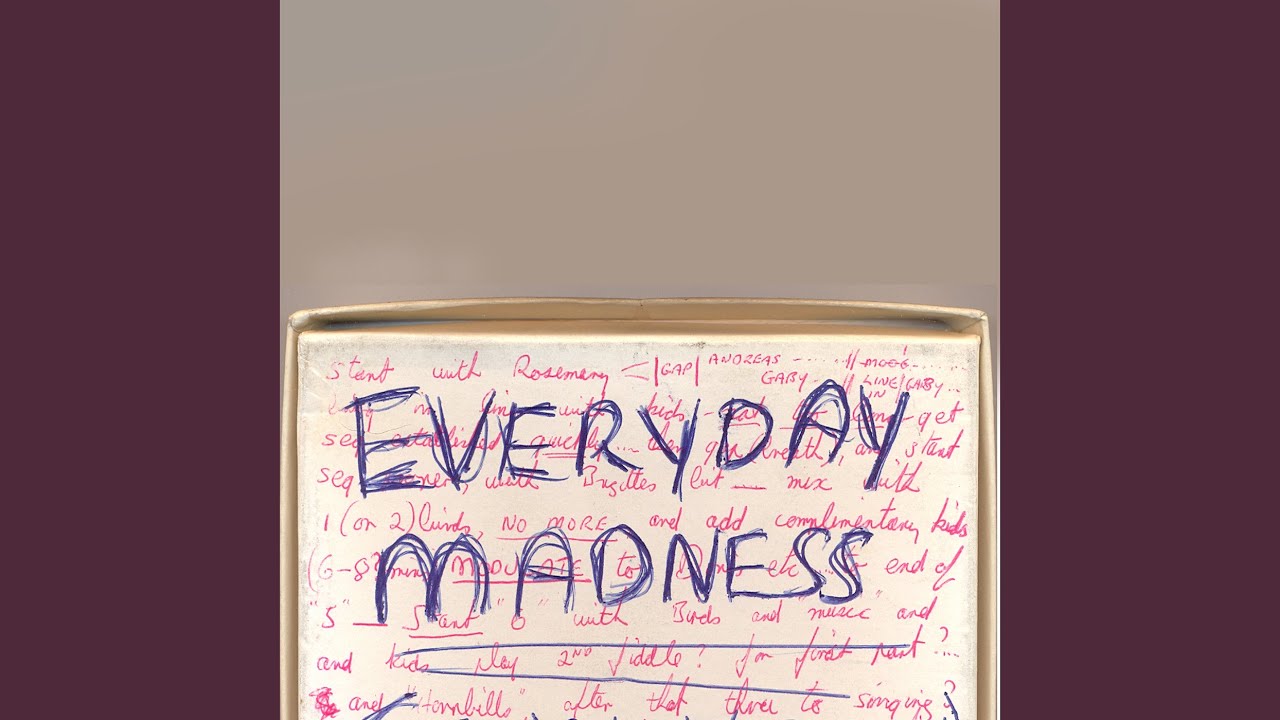 Start with Rosemary |GAP| ANDREAS ........ // MOOG ........
GABY // LINE IN / GABY ...
EVERYDAY
in line with kids get
seq established quickly ... then gap breath, and start
seq with Brigittes but mix with
1 (or 2) birds, NO MORE and add complimentary kids
MADNESS
(6-8? mins MODULATE to etc to end of
"5" Start "6" with Birds and "music" and
and kids play 2ND fiddle? for first part? ...
and "Hornbills" after that three to singing?